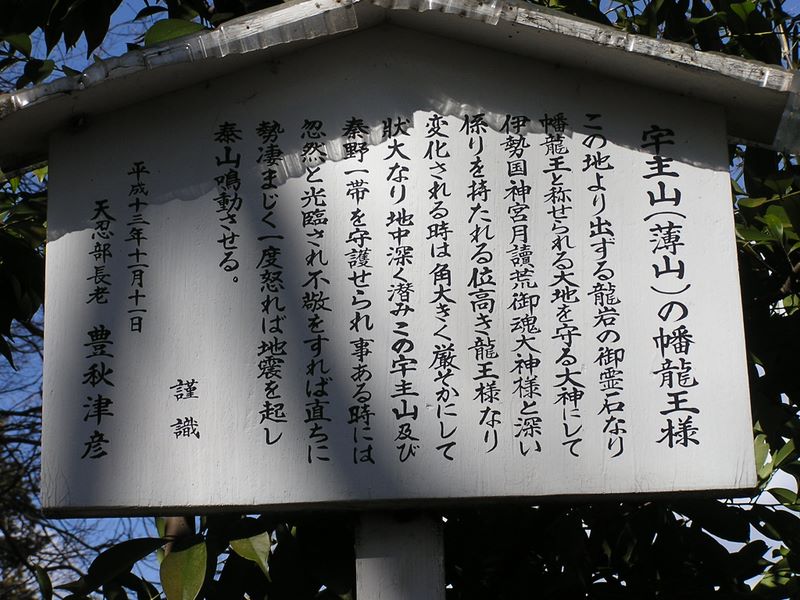 宇主山(薄山)の幡龍王様
この地より出ずる龍岩の御霊石なり
幡龍王と称せられる大地を守る大神にして
伊勢国神宮月讀荒御魂大神様と深い
係りを持たれる位高き龍王様なり
変化される時は角大きく厳そかにして
狀大なり地中深く潜みこの宇主山及び
秦野一帯を守護せられ事ある時には
忽然と光臨され不敬をすれば直ちに
勢凄まじく一度怒れば地震を起し
泰山鳴動させる。
謹識
平成十三年十一月十一日
天忍部長老 豊秋津彦